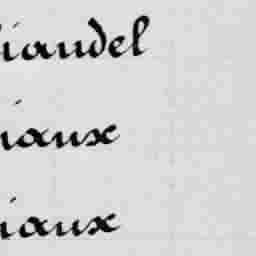 iandel
iaux
iaux